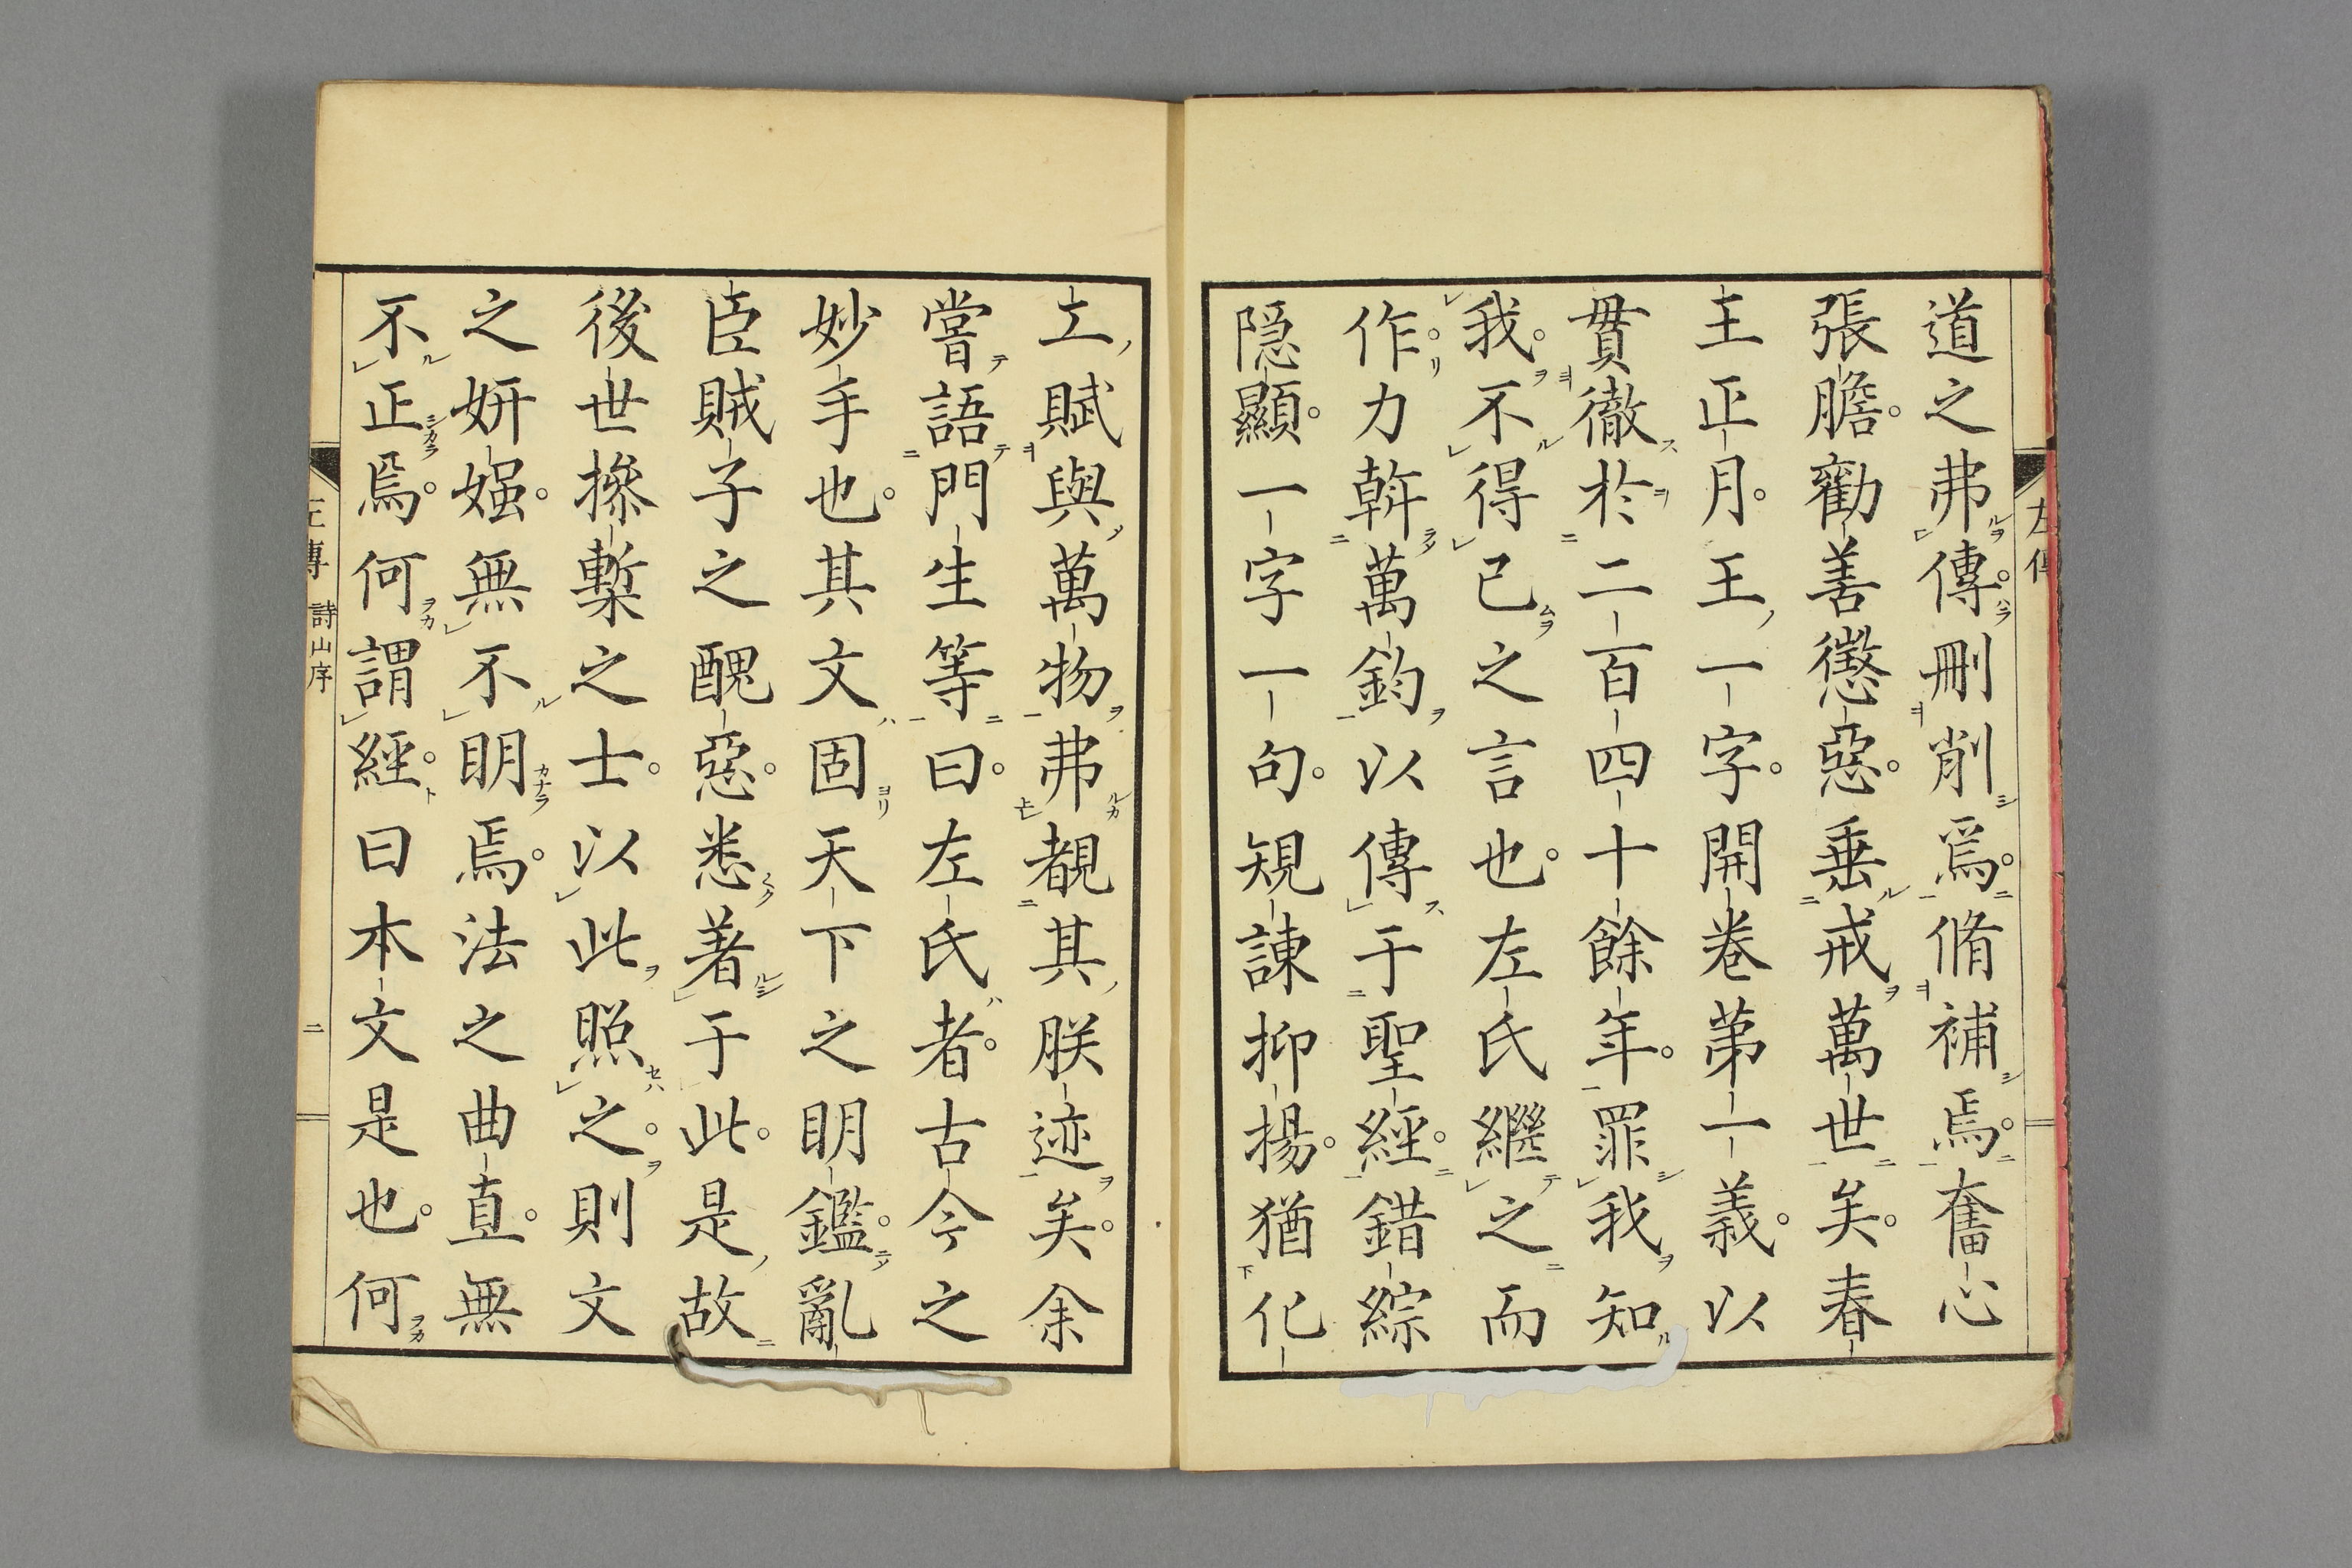 道之弗傳刪削焉脩補焉奮心
張膽勸善懲惡垂戒萬世矣春
王正月王一字開卷第一義以
貫徹於二百四十餘年罪我知
我不得已之言也左氏繼之而
作力斡萬鈞以傳于聖經錯綜
隱顯一字一句規諫抑揚猶化
工賦與萬物弗覩其朕迹矣余
嘗語門生等曰左氏者古今之
妙手也其文固天下之明鑑亂
臣賊子之醜惡悉著于此是故
後世摻槧之士以此照之則文
之妍媸無不明焉法之曲直無
不正焉何謂經曰本文是也何
左傳
詩山序
二